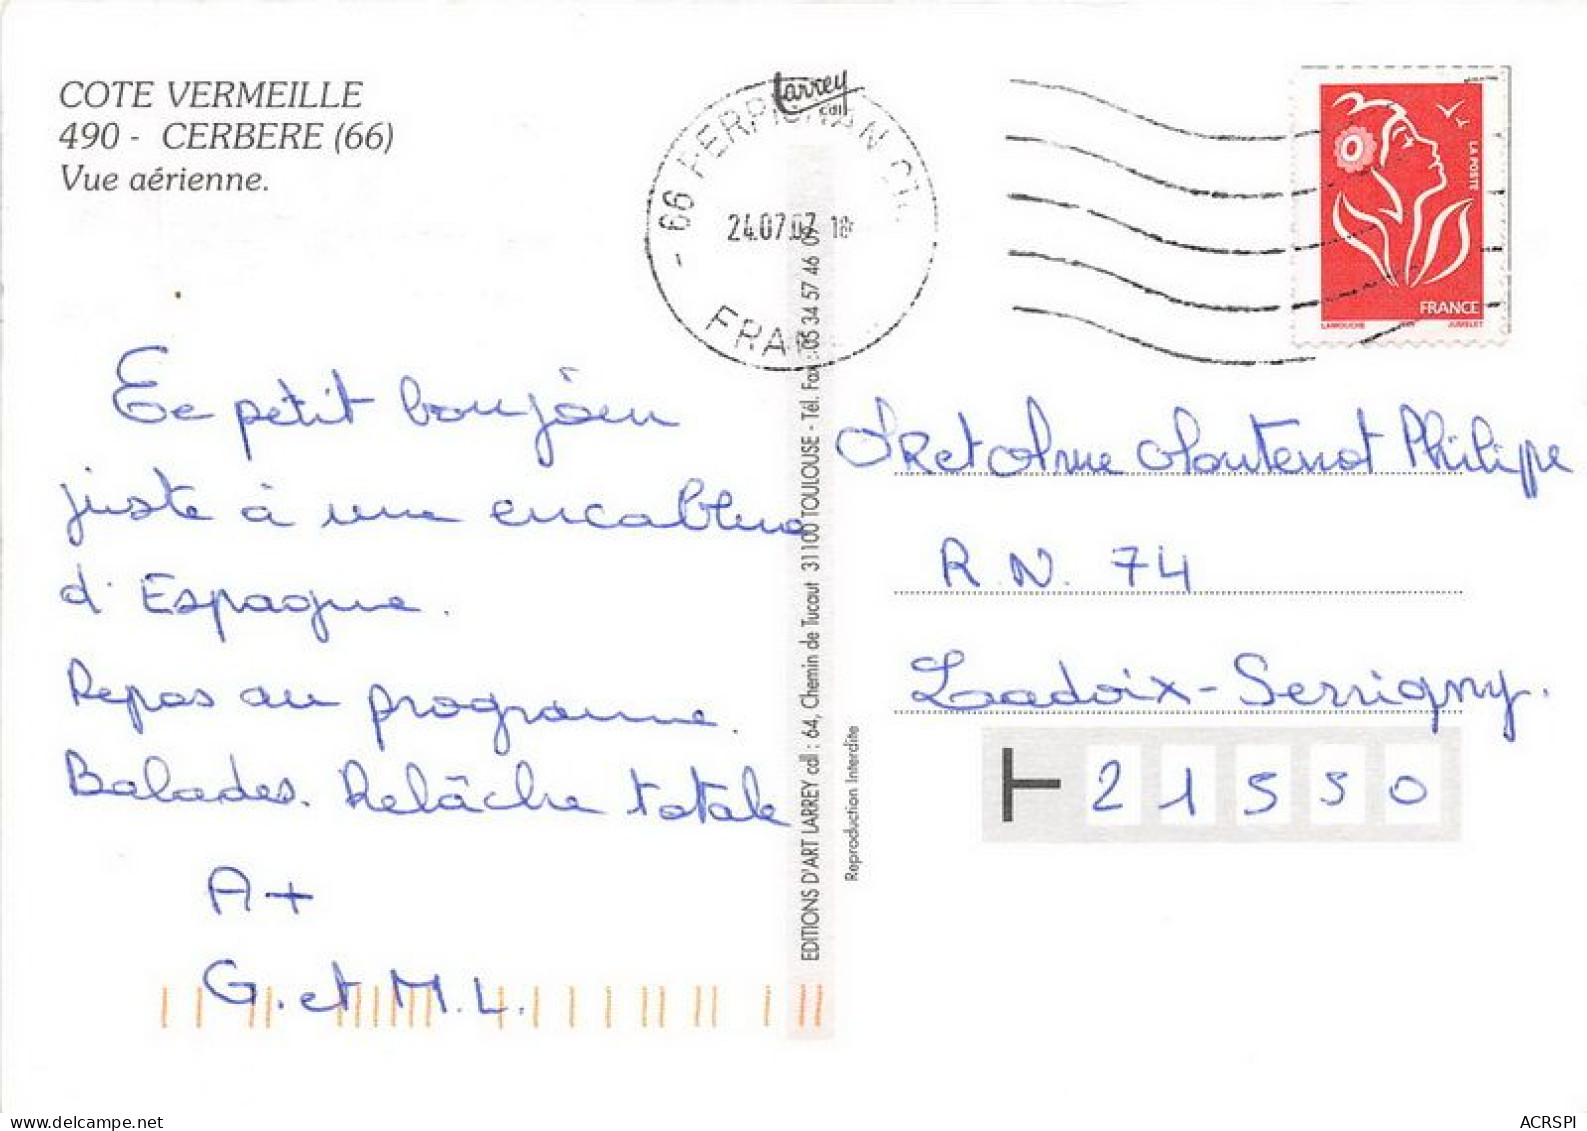 COTE VERMEILLE
490 - CERBERE (66)
Vue aérienne.
Larrey
- 66 PERPIGNAN CT.
24.07.07 18
FRAN
LA POSTE
FRANCE
LAMOUCHE JUMELET
Ce petit bonjour
juste à une encablure
d'Espagne.
Repos au programme.
Balades. Relâche totale
A+
G. et M.L.
EDITIONS D'ART LARREY cdl : 64, Chemin de Tucaut 31100 TOULOUSE - Tél. Fax : 05 34 57 46 09
Reproduction Interdite
MR et Mme Montenot Philippe
R.N. 74
Ladoix-Serrigny.
T 21550
ACRSPI